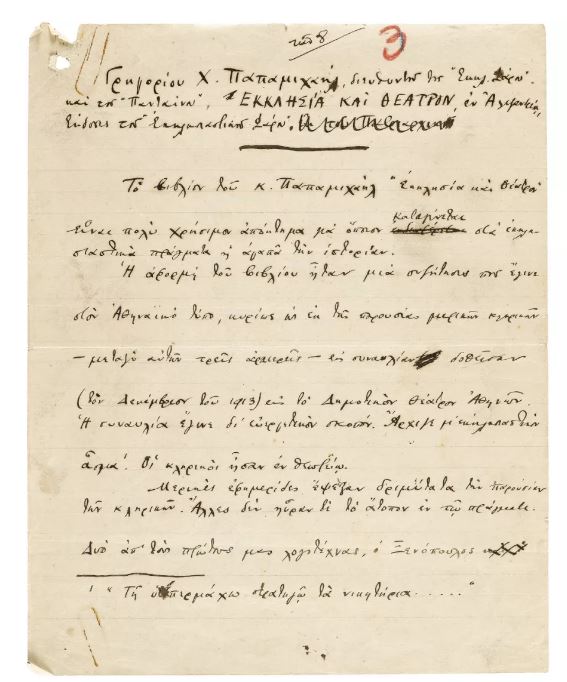 3
Γρηγορίου Χ. Παπαμιχαήλ, διευθυντή της "Εκκλ. Φάρου"
και του "Πανταίνου", "ΕΚΚΛΗΣΙΑ ΚΑΙ ΘΕΑΤΡΟΝ, ἐν Ἀλεξανδρείᾳ,
Ἔκδοσις τοῦ "Ἐκκλησιαστικοῦ Φάρου".
Τὸ βιβλίον τοῦ κ. Παπαμιχαὴλ "Ἐκκλησία καὶ Θέατρο"
εἶναι πολὺ χρήσιμον ἀπόκτημα γιὰ ὅποιον
καταγίνεται
στὰ ἐκκλη-
σιαστικὰ πράγματα ἢ ἀγαπᾷ τὴν ἱστορίαν.
Ἡ ἀφορμὴ τοῦ βιβλίου ἦταν μιὰ συζήτησις ποῦ ἔγινε
στὸν Ἀθηναϊκὸ τύπο, κυρίως ὡς ἐκ τῆς παρουσίας μερικῶν κληρικῶν
— μεταξὺ αὐτῶν τρεῖς ἀρχιερεῖς — εἰς συναυλίαν δοθεῖσαν
(τὸν Δεκέμβριον τοῦ 1913) εἰς τὸ Δημοτικὸν Θέατρον Ἀθηνῶν.
Ἡ συναυλία ἔγινε δι' εὐεργετικὸν σκοπόν. Ἄρχιζε μ' ἐκκλησιαστικὸν
ᾆσμα¹. Οἱ κληρικοὶ ἦσαν ἐν θεωρείῳ.
Μερικὲς ἐφημερίδες ἔψεξαν δριμύτατα τὴν παρουσίαν
τῶν κληρικῶν. Ἄλλες δὲν ηὗραν τὸ ἄτοπον ἐν τῷ πράγματι.
Δυὸ ἀπ' τοὺς πρώτους μας λογοτέχνας, ὁ Ξενόπουλος
¹ "Τῇ ὑπερμάχῳ στρατηγῷ τὰ νικητήρια ......"